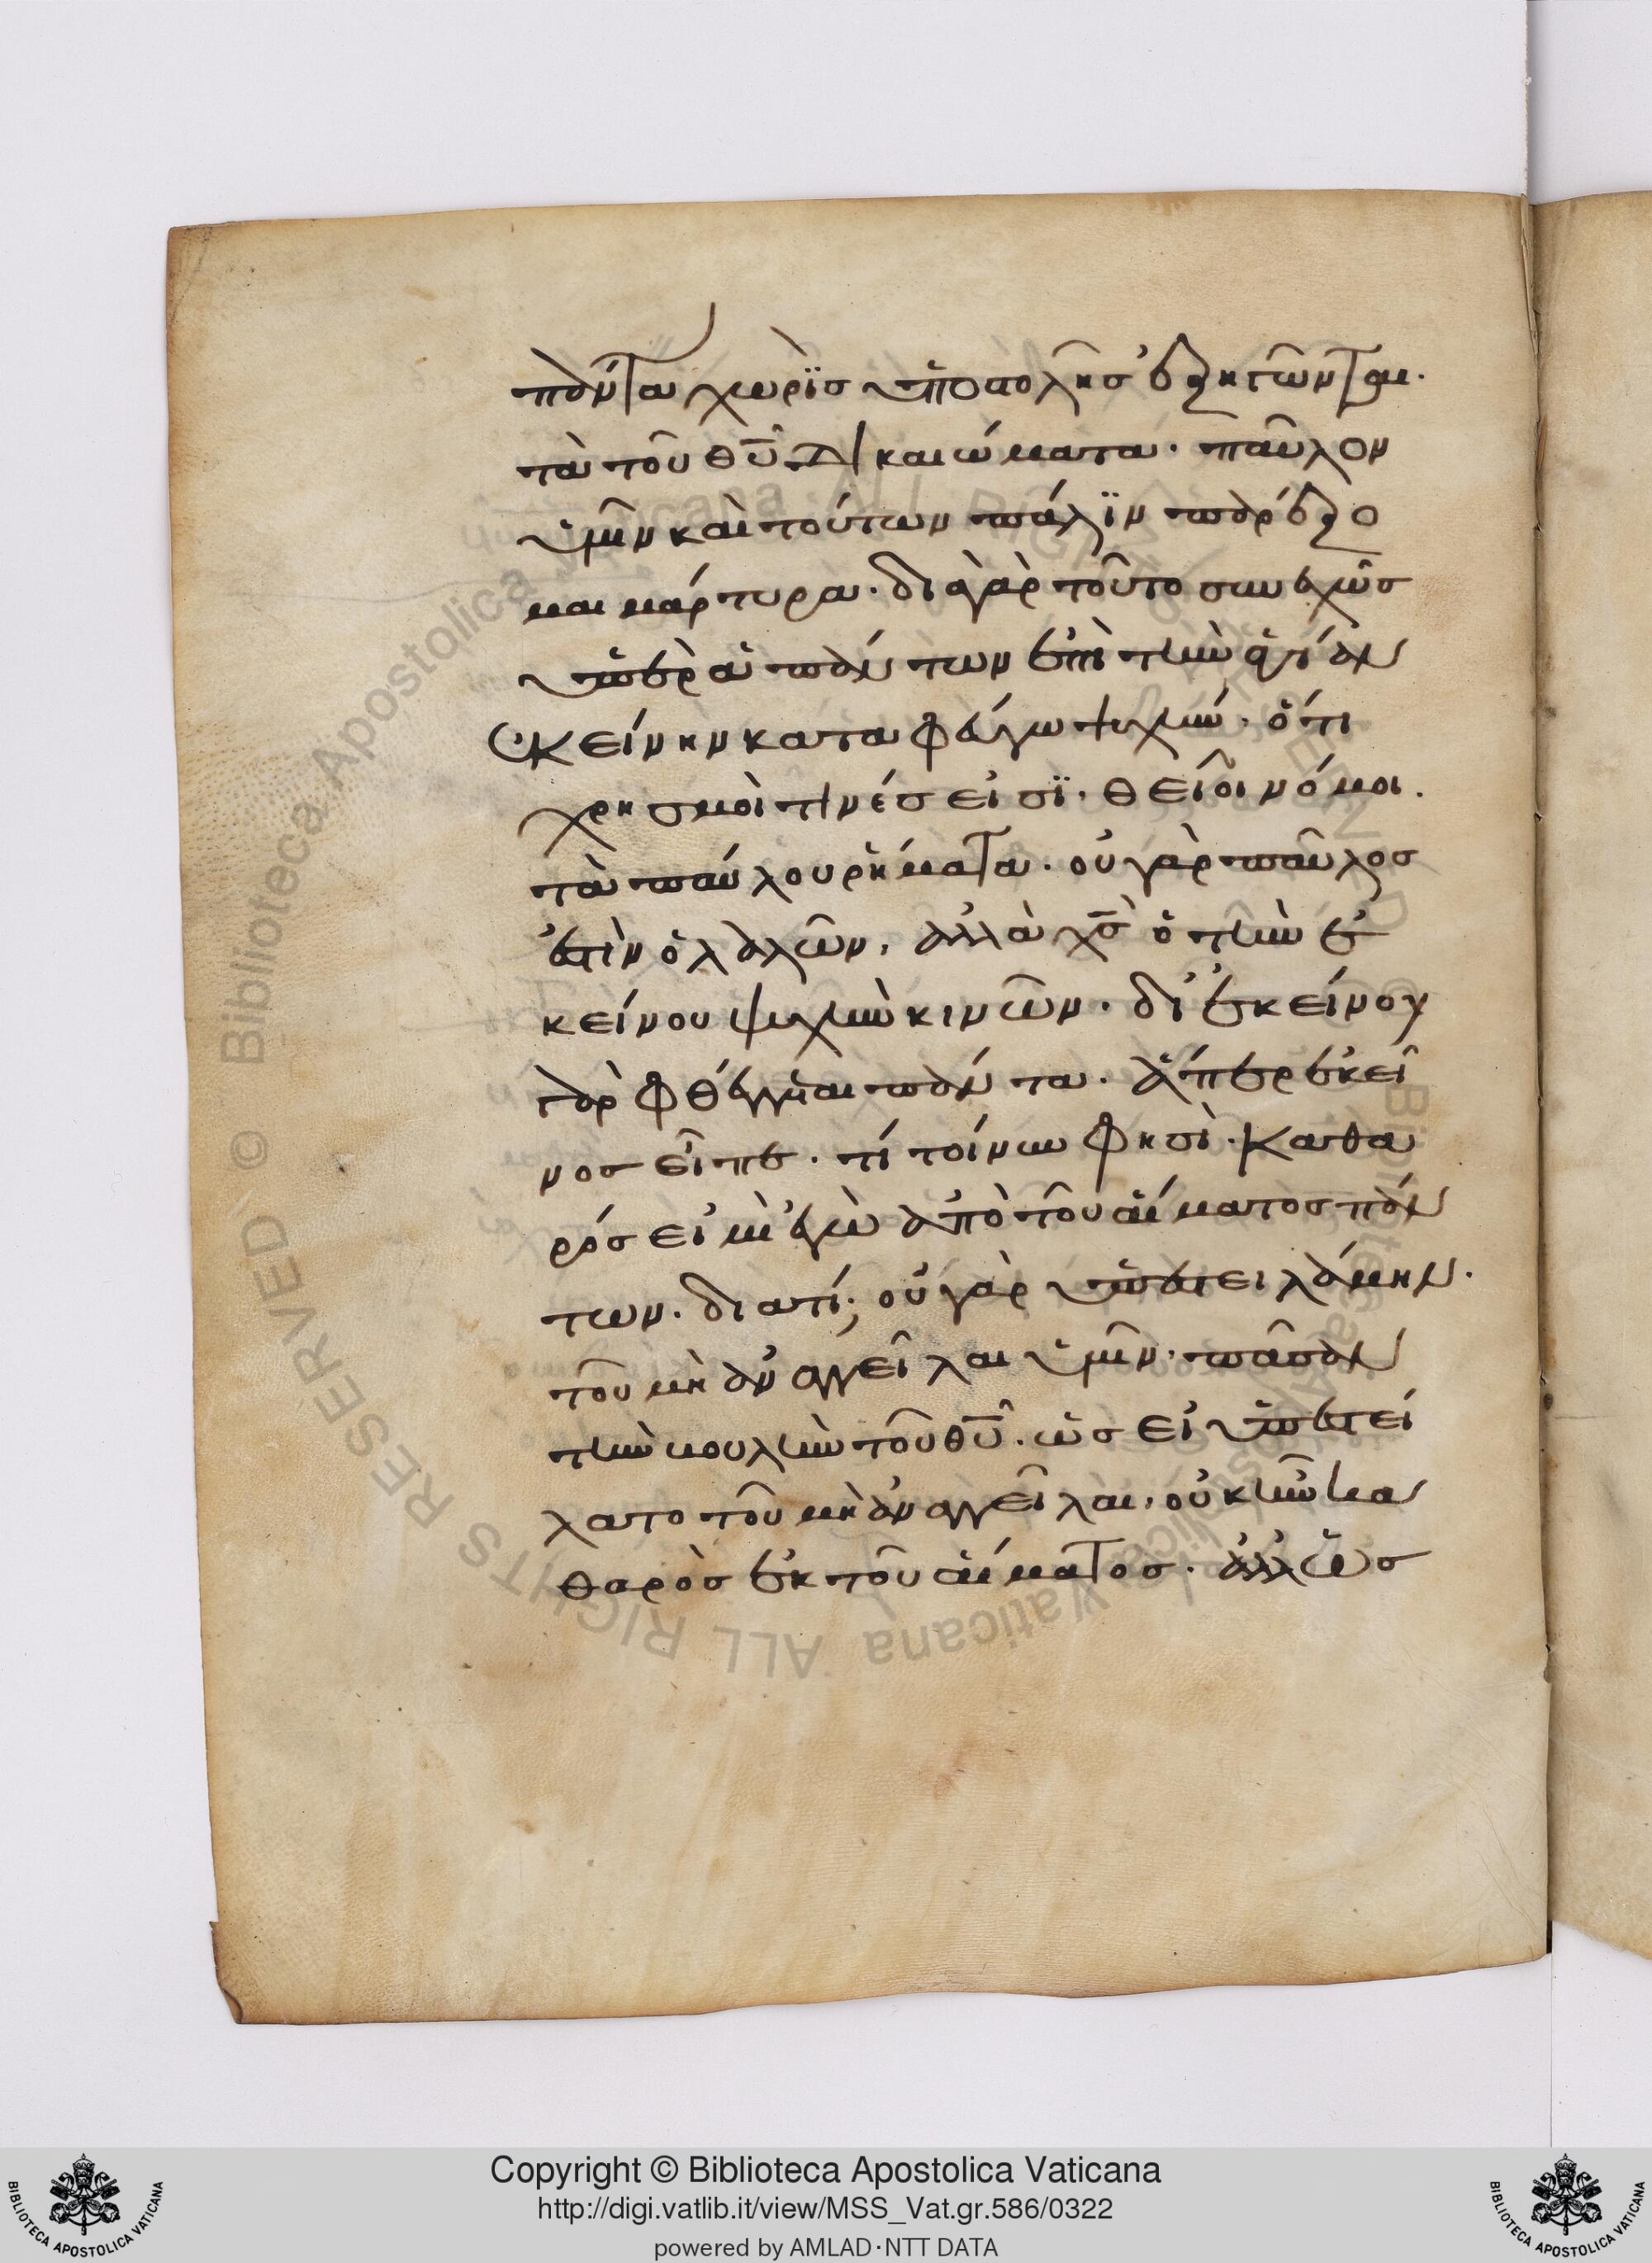 πάντα χωρὶς ὑποστολῆς ἐξηγῶνται
τὰ τοῦ θυ δικαιώματα· παῦλον
ὑμῖν καὶ τούτων πάλϊν παρέξο
μαι μάρτυρα· διὰ γὰρ τοῦτο συνεχῶς
ὑπὲρ ἁπάντων ἐπὶ τὴν ἁγίαν
ἐκείνην καταφεύγω ψυχήν· ὅτι
χρησμοὶ τινές εἰσϊ· θεῖοι νόμοι·
τὰ παύλου ῥήματα· οὐ γὰρ παῦλος
ἐστὶν ὁ λαλῶν, ἀλλὰ χς ὁ τὴν ἐ
κείνου ψυχὴν κινῶν· δι' ἐκείνου
παρὰ φθέγγεται πάντα· ἅπερ ἐκεῖ
νος εἶπε· τί τοίνυν φησὶ· καθα
ρός εἰμὶ ἐγὼ ἀπὸ τοῦ αἵματος πάν
των· διατί; οὐ γὰρ ὑπεστειλάμην·
τοῦ μὴ ἀναγγεῖλαι ὑμῖν· πᾶσαν
τὴν βουλὴν τοῦ θυ· ὡς εἰ ὑπεστεί
λατο τοῦ μὴ ἀναγγεῖλαι, οὐκ ἦν κα
θαρὸς ἐκ τοῦ αἵματος· ἀλλ' ὡς
Copyright © Biblioteca Apostolica Vaticana
http://digi.vatlib.it/view/MSS_Vat.gr.586/0322
powered by AMLAD·NTT DATA
BIBLIOTECA APOSTOLICA VATICANA
BIBLIOTECA APOSTOLICA VATICANA
© Biblioteca Apostolica Vaticana ALL RIGHTS RESERVED
© Biblioteca Apostolica Vaticana ALL RIGHTS RESERVED